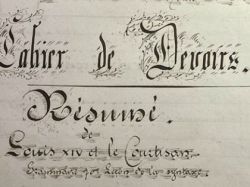 Cahier de Devoirs.
Résumé.
de
Louis XIV et le Courtisan